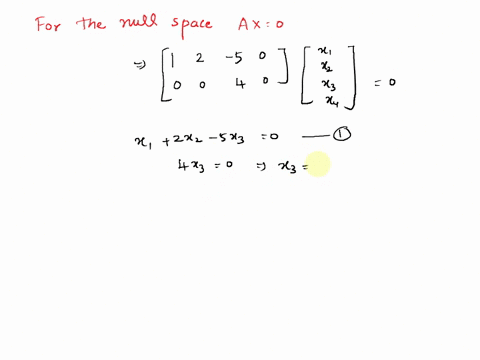 For the null space AX=0
⇒ [1 2 -5 0
0 0 4 0] [x1
x2
x3
x4] = 0
x1 + 2x2 - 5x3 = 0 —— ①
4x3 = 0 ⇒ x3 =